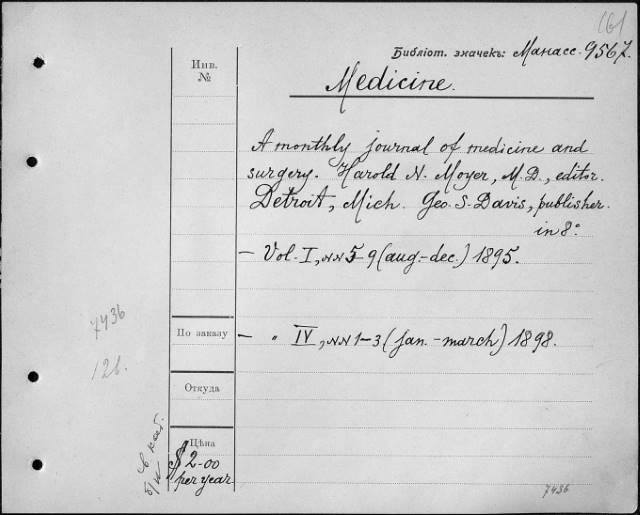 161
Библіот. значекъ: Манасс. 9567.
Инв.
№
Medicine.
A monthly journal of medicine and
surgery. Harold N. Moyer, M.D., editor.
Detroit, Mich. Geo. S. Davis, publisher.
in 8°
— Vol. I, NN 5-9 (aug.-dec.) 1895.
7436
По заказу
— " IV, NN 1-3 (jan.-march) 1898.
Откуда
Цѣна
$2-00
per year
7436